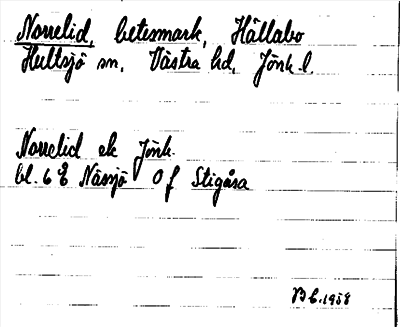 Norrelid, betesmark, Hållabo
Hultsjö sn. Västra hd, Jönk. l.
Norrelid ek Jönk.
bl. 6 Ö Nässjö Of Stigåsa
B.C. 1958